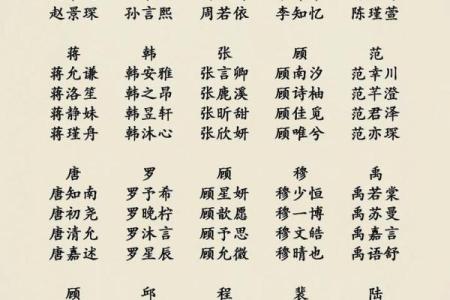 赵景琛 孙言熙 周若依 李知忆 陈瑾萱
蒋 韩 张 顾 范
蒋允谦 韩安雅 张言卿 顾南汐 范幸川
蒋洛笙 韩之昂 张鹿溪 顾诗柚 范芊澄
蒋静姝 韩昱轩 张昕甜 顾佳觅 范君泽
蒋瑾舟 韩沐心 张欣妍 顾唯兮 范亦琛
唐 罗 顾 穆 禹
唐知南 罗予希 顾星妍 穆少恒 禹若棠
唐初尧 罗晚柠 顾歆愿 穆一博 禹苏曼
唐清允 罗沐言 顾予思 穆文皓 禹嘉言
唐嘉述 罗星辰 顾允微 穆晴也 禹语舒
顾 邱 程 裴 陆